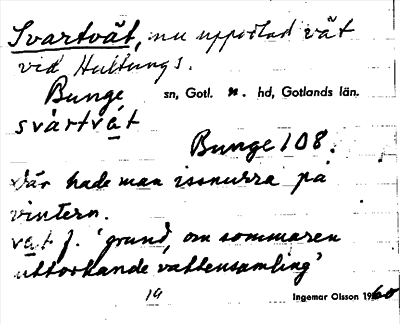 Svartvät, nu uppodlad vät
vid Hultungs.
Bunge sn, Gotl. n. hd, Gotlands län.
svàrtvát
Bunge 108.
Där hade man issnurra på
vintern.
vat f. 'grund, om sommaren
uttorkande vattensamling'
19 Ingemar Olsson 1960